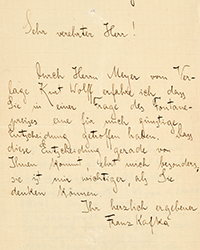 Sehr verehrter Herr!
Durch Herrn Meyer vom Ver-
lage Kurt Wolff erfahre ich, dass
Sie in einer Frage des Fontane-
preises eine für mich günstige
Entscheidung getroffen haben. Dass
diese Entscheidung gerade von
Ihnen kommt, ehrt mich besonders,
sie ist mir wichtiger, als Sie
denken können.
Ihr herzlich ergebener
Franz Kafka